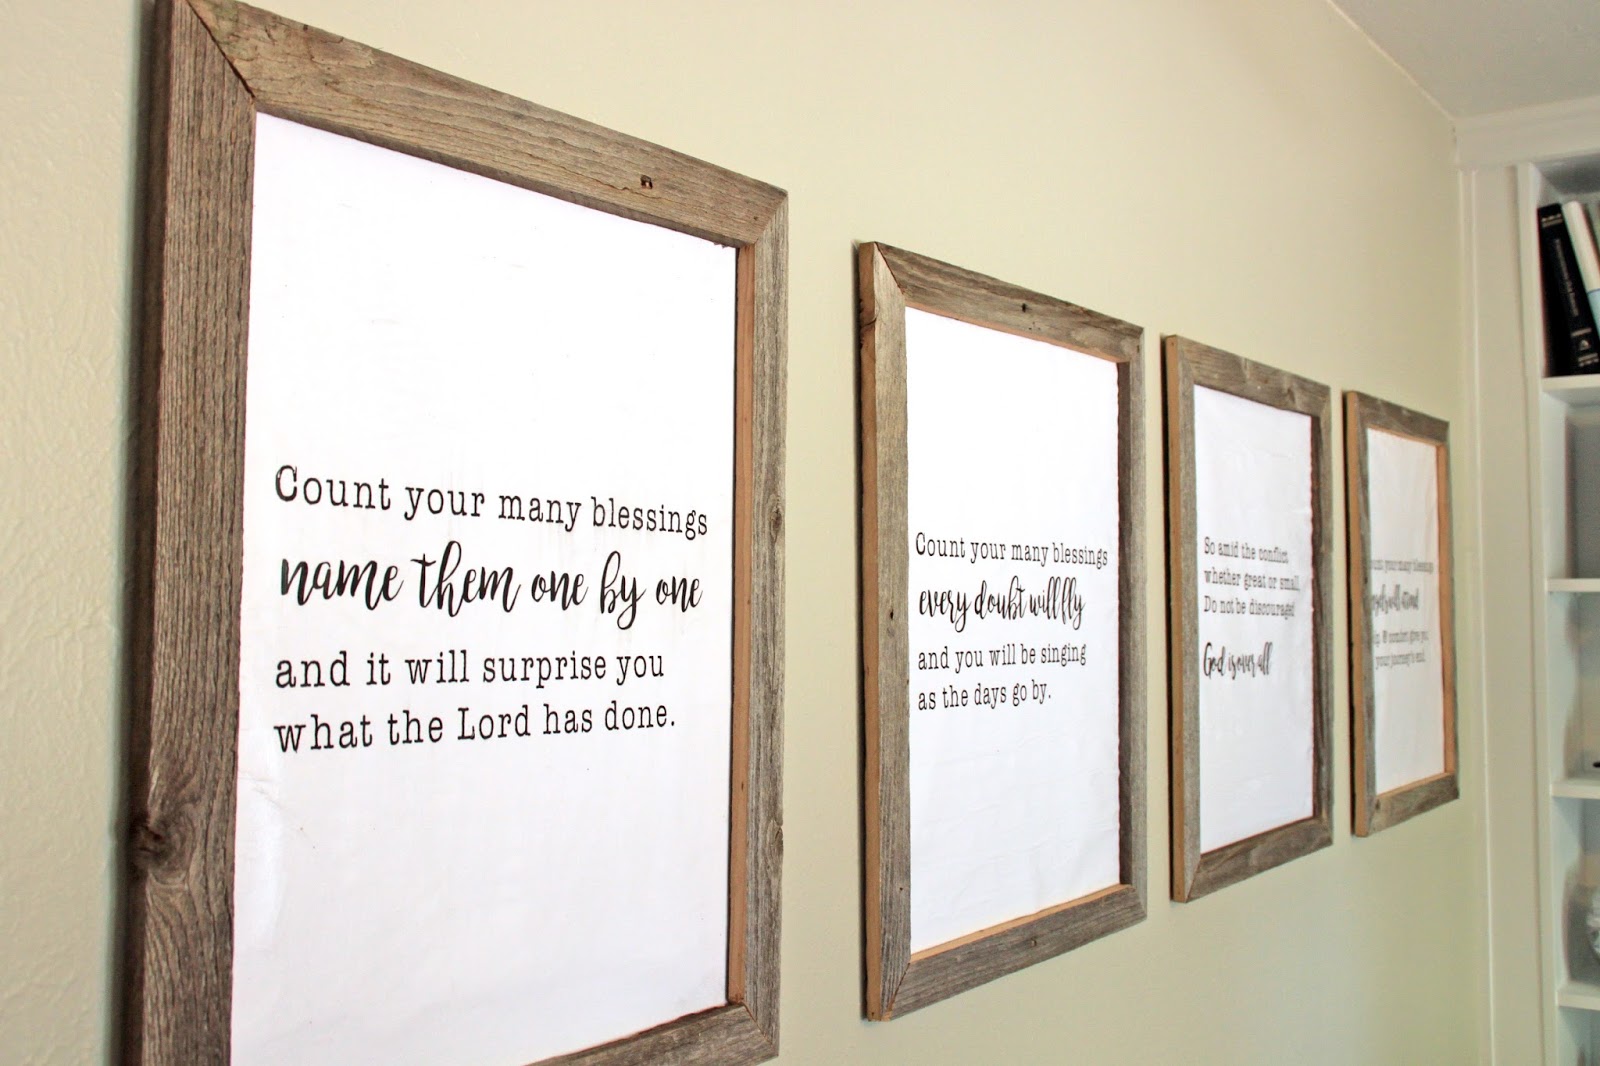 Count your many blessings
name them one by one
and it will surprise you
what the Lord has done.
Count your many blessings
every doubt will fly
and you will be singing
as the days go by.
So amid the conflict,
whether great or small,
Do not be discouraged
God is over all
your many blessings
will attend
comfort give you
your journey's end.